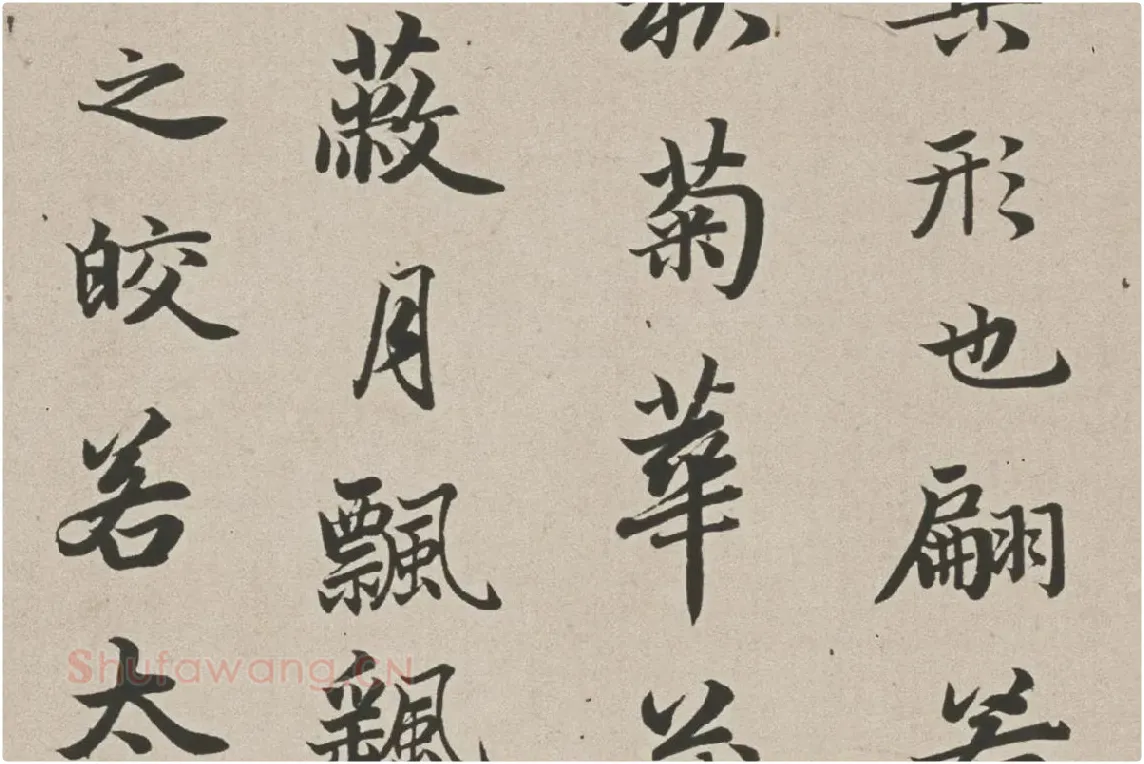 其形也翩若
秋菊華茂
蔽月飄飖
之皎若太
Shufawang.CN